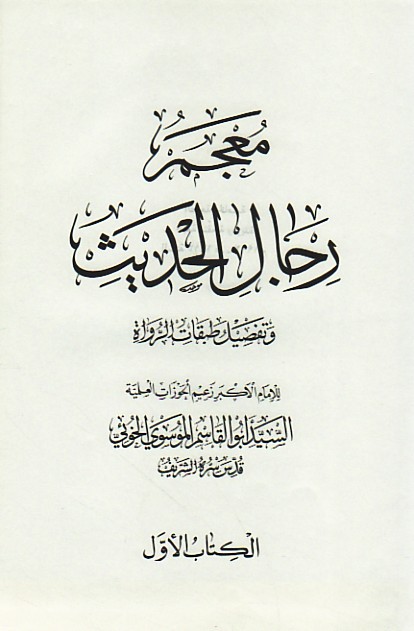 مُعْجَمُ
رِجَالِ الْحَدِيثِ
وَتَفصِيْل طَبقَاتِ الرُّوَاة
للإمَامِ الأكبَر زَعيْم الحَوزَاتِ العِلميَّة
السَّيِّد أبُو القَاسِم المُوسَوي الخُوئي
قُدِّسَ سِرُّهُ الشَّريفُ
الكِتَابُ الأوَّل